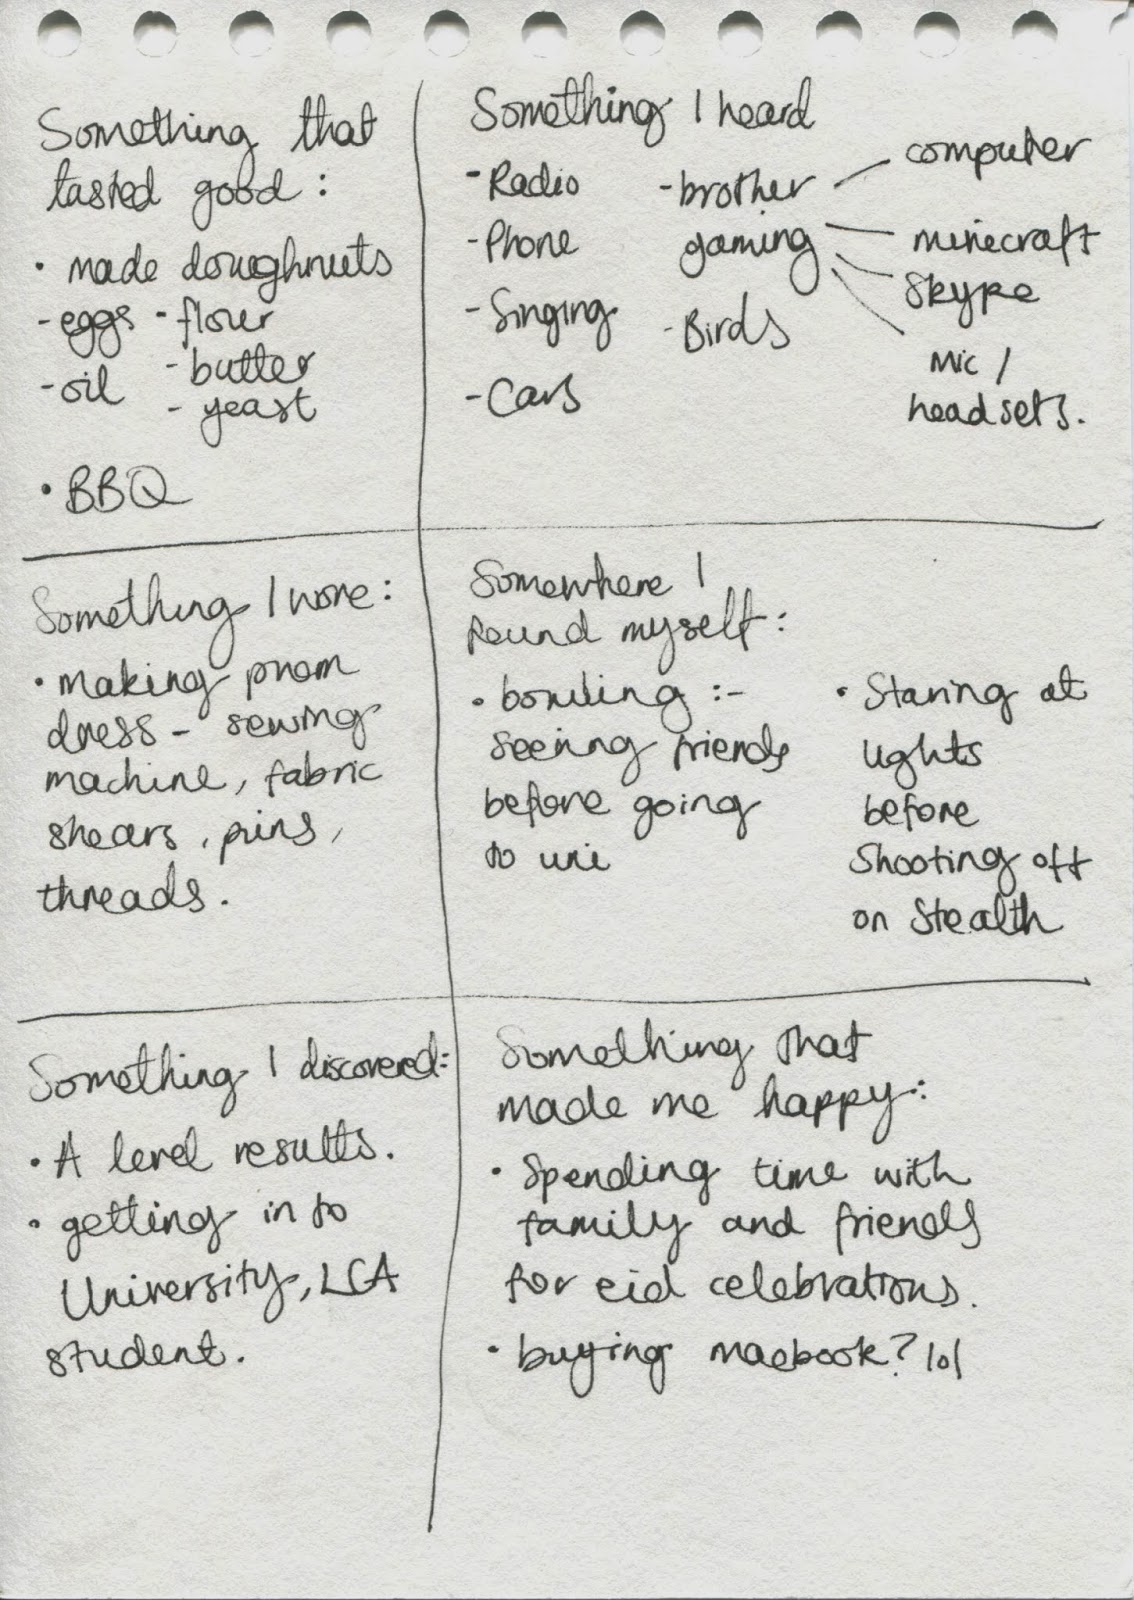 Something that
tasted good :
• made doughnuts
- eggs - flour
- butter
- oil
- yeast
• BBQ
Something I heard
- Radio
- Phone
- Singing
- Cars
- brother
gaming
- Birds
computer
minecraft
Skype
Mic /
headsets.
Something I wore :
• making prom
dress - sewing
machine, fabric
shears, pins,
threads.
Somewhere I
found myself :
• bowling :-
seeing friends
before going
to uni
• Staring at
lights
before
Shooting off
on Stealth
Something I discovered:
• A level results.
• getting in to
University, LCA
student.
Something that
made me happy:
• Spending time with
family and friends
for eid celebrations.
• buying macbook? lol